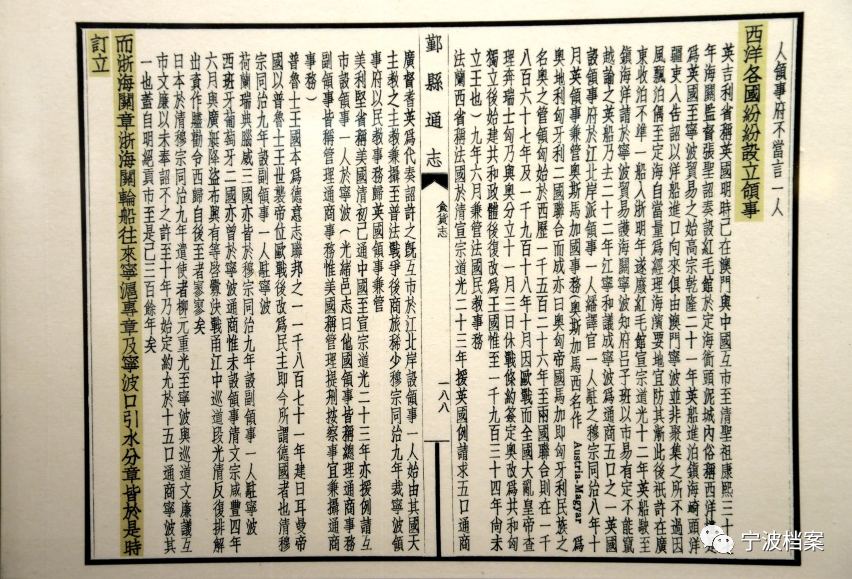 人領事府不當言一人
西洋各國紛紛設立領事
英吉利省稱英國明時已在澳門與中國互市至清聖祖康熙三十
年海關監督張聖詔奏設紅毛館於定海衜頭泥城內俗稱西洋
爲英國至寧波貿易之始高宗乾隆二十一年英船進泊鎮海崎頭洋
疆吏入告詔以洋船進口向來俱由澳門寧波並非聚集之所不過因
風飄泊偶至定海自當量爲經理海濱要地宜防其漸此後祇許在廣
東收泊不準一船入浙明年遂廢紅毛館宣宗道光十二年英船駛至
鎮海洋請於寧波貿易護海關寧波知府呂子班以市易有定不能竄
越諭之英船乃去二十二年江寧和議成寧波爲通商五口之一英國
設領事府於江北岸派領事一人繙譯官一人駐之穆宗同治八年十
月英領事兼管奧斯馬加國事務(奧斯加馬西名作 Austria-Magyar 爲
奧地利匈牙利二國聯合而成亦曰奧匈帝國馬加即匈牙利民族之
名奧之管領匈始於西歷一千五百二十六年至兩國聯合則在一千
八百六十七年及一千九百十八年十月因歐戰而全國大亂皇帝查
理奔瑞士匈乃與奧分立十一月三日休戰條約簽定奧改爲共和匈
獨立後始建共和政體後復改爲王國惟至一千九百三十四年尙未
立王也)九年六月兼管法國民教事務
法蘭西省稱法國於清宣宗道光二十三年援英國例請求五口通商
鄞縣通志
食貨志
一八八
廣督耆英爲代奏詔許之旣互市於江北岸設領事一人始由其國天
主教之主教兼攝至普法戰爭後商旅稀少穆宗同治九年裁寧波領
事府以民教事務歸英國領事兼管
美利堅省稱美國清初已通中國至宣宗道光二十三年亦援例請互
市設領事一人於寧波(光緒邑志曰他國領事皆稱總理通商事務
副領事皆稱管理通商事務惟美國稱管理提刑按察事宜兼攝通商
事務)
普魯士王國本爲德意志聯邦之一一千八百七十一年建日耳曼帝
國以普魯士王王世襲帝位歐戰後改爲民主即今所謂德國者也淸穆
宗同治九年設副領事一人駐寧波
荷蘭瑞典腦威三國亦皆於穆宗同治九年設副領事一人駐寧波
西班牙葡萄牙二國亦曾於寧波通商惟未設領事清文宗咸豐四年
六月與廣艇降盜布興有等啓釁決戰甬江中巡道段光清反復排解
出貲作贐勸令西歸自後至者寥寥矣
日本於清穆宗同治九年遣使者柳元重光至寧波與巡道文廉議互
市文廉以未奉詔不之許至十年乃始定約允於十五口通商寧波其
一也蓋自明絕貢市至是已三百餘年矣
而浙海關章浙海關輪船往來寧滬專章及寧波口引水分章皆於是時
訂立
宁波档案